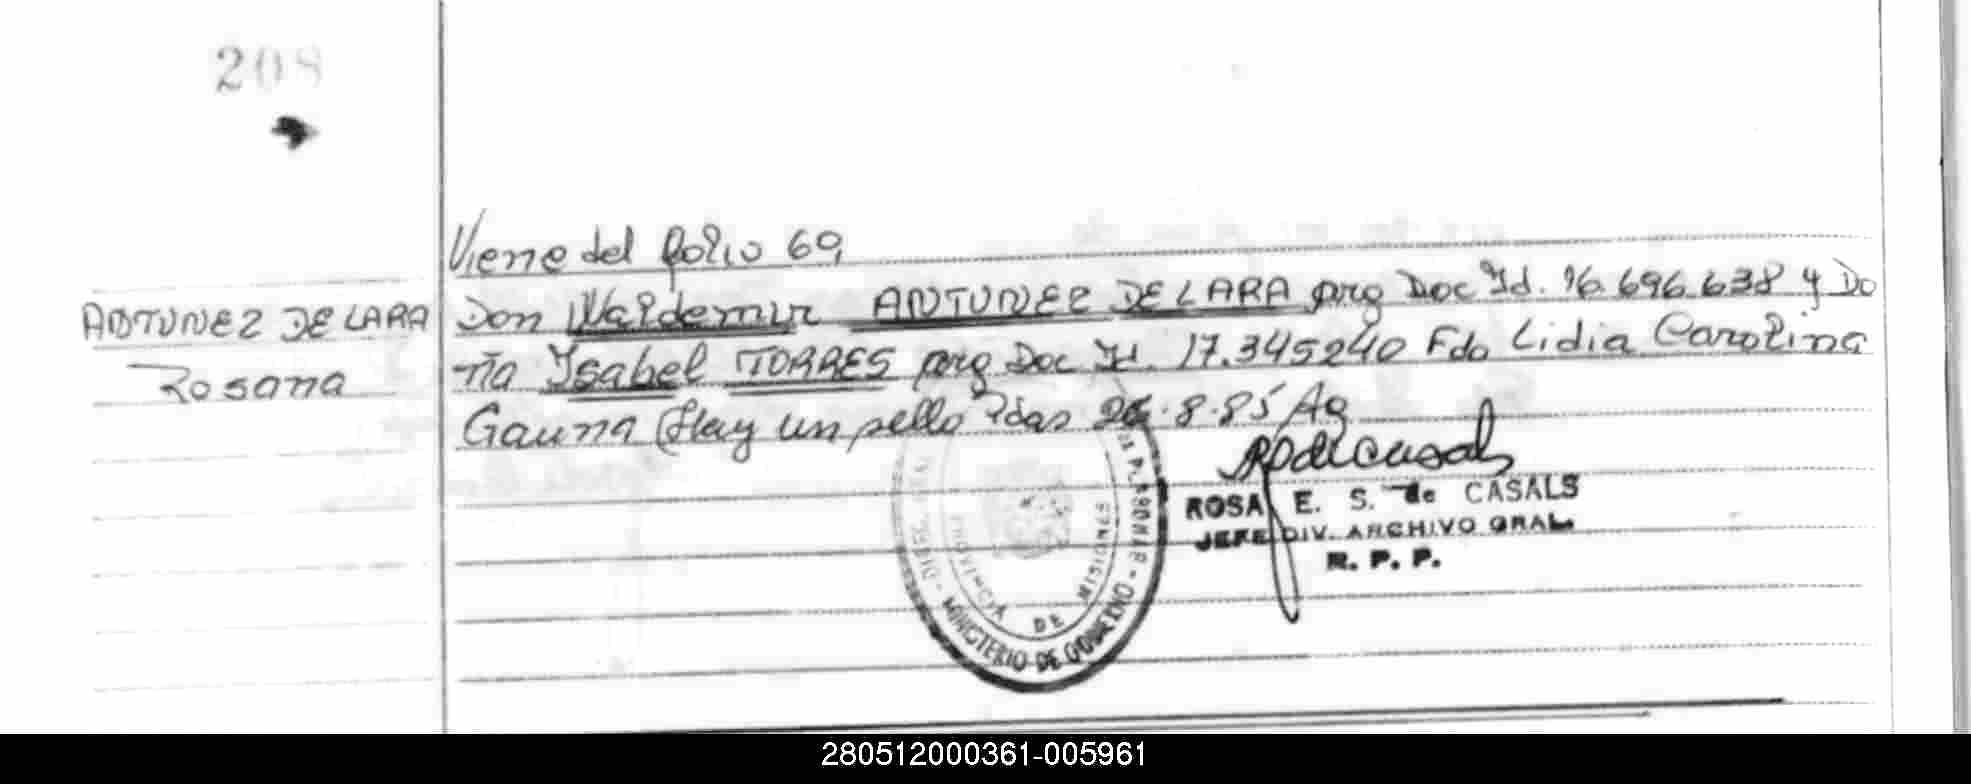 208
Viene del folio 69,
ANTUNEZ DE LARA
Rosana
Don Waldemir ANTUNEZ DE LARA arg Doc Id. 16.696.638 y Do
ña Ysabel TORRES arg Doc Id. 17.345240 Fdo Lidia Carolina
Gauna (Hay un sello Pdas 26.8.85 Ag
ROSA E. S. de CASALS
JEFE DIV. ARCHIVO GRAL.
R. P. P.
MINISTERIO DE GOBIERNO
PROVINCIA DE MISIONES
280512000361-005961